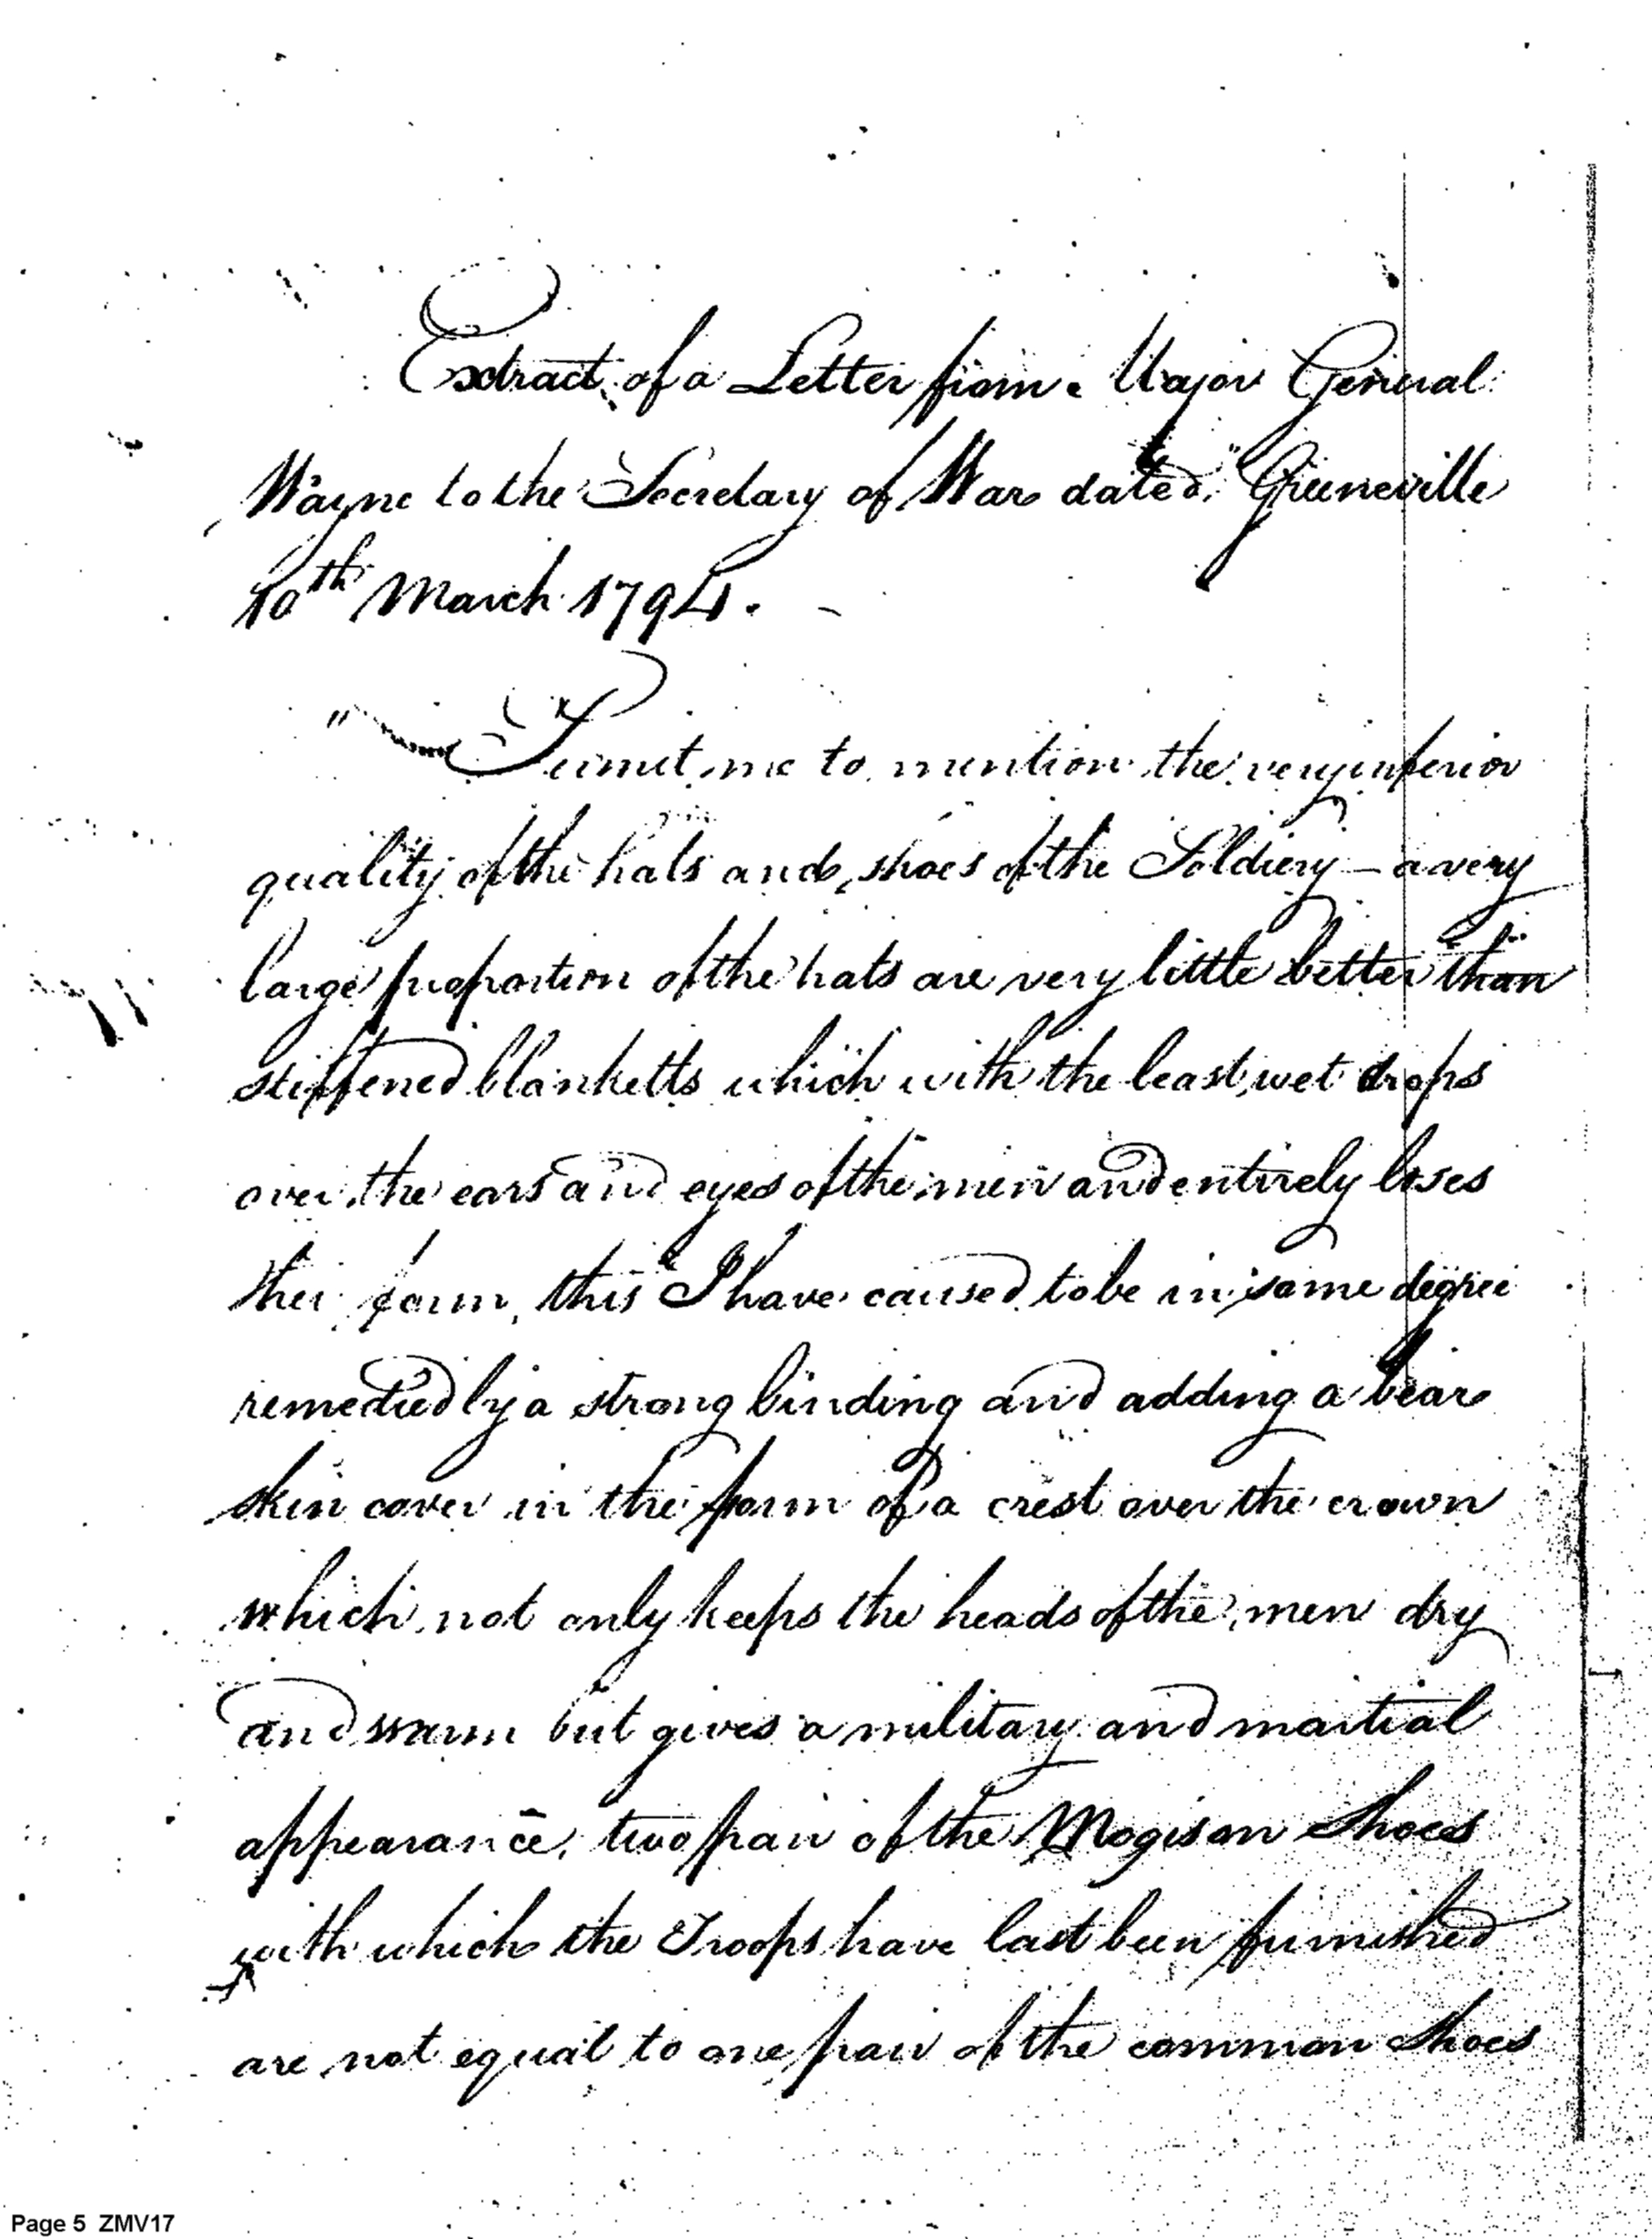 Extract of a Letter from Major General
Wayne to the Secretary of War dated, "Greeneville
10th March 1794. -
" Permit me to mention the very inferior
quality of the hats and shoes of the Soldiery — a very
large proportion of the hats are very little better than
stiffened blanketts which with the least wet drops
over the ears and eyes of the men and entirely loses
their form, this I have caused to be in some degree
remedied by a strong binding and adding a bear
skin cover in the form of a crest over the crown
which not only keeps the heads of the men dry
and warm but gives a military and martial
appearance, two pair of the Mogison Shoes
with which the Troops have last been furnished
are not equal to one pair of the common Shoes
Page 5 ZMV17